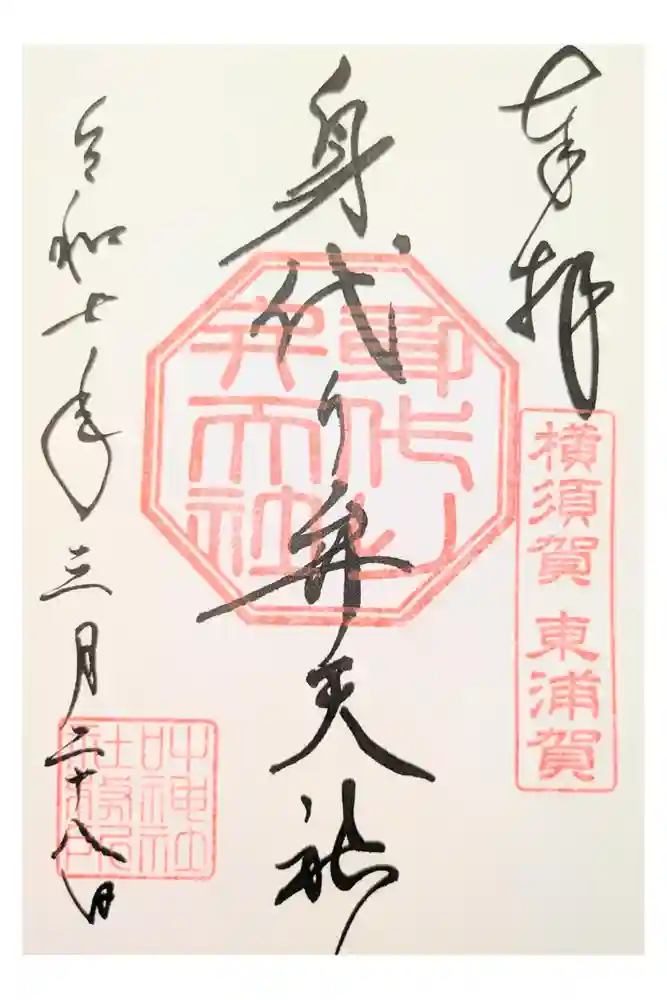 奉拝
横須賀 東浦賀
身代り弁天社
身代り
弁天社
令和七年三月二十八日
叶神社
社務所